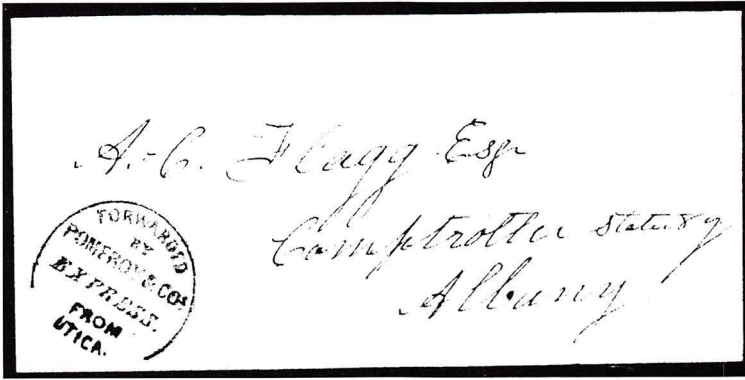 A. C. Flagg Esqr
Comptroller State N Y
Albany
FORWARDED
BY
POMEROY & CO'S
EXPRESS.
FROM
UTICA.